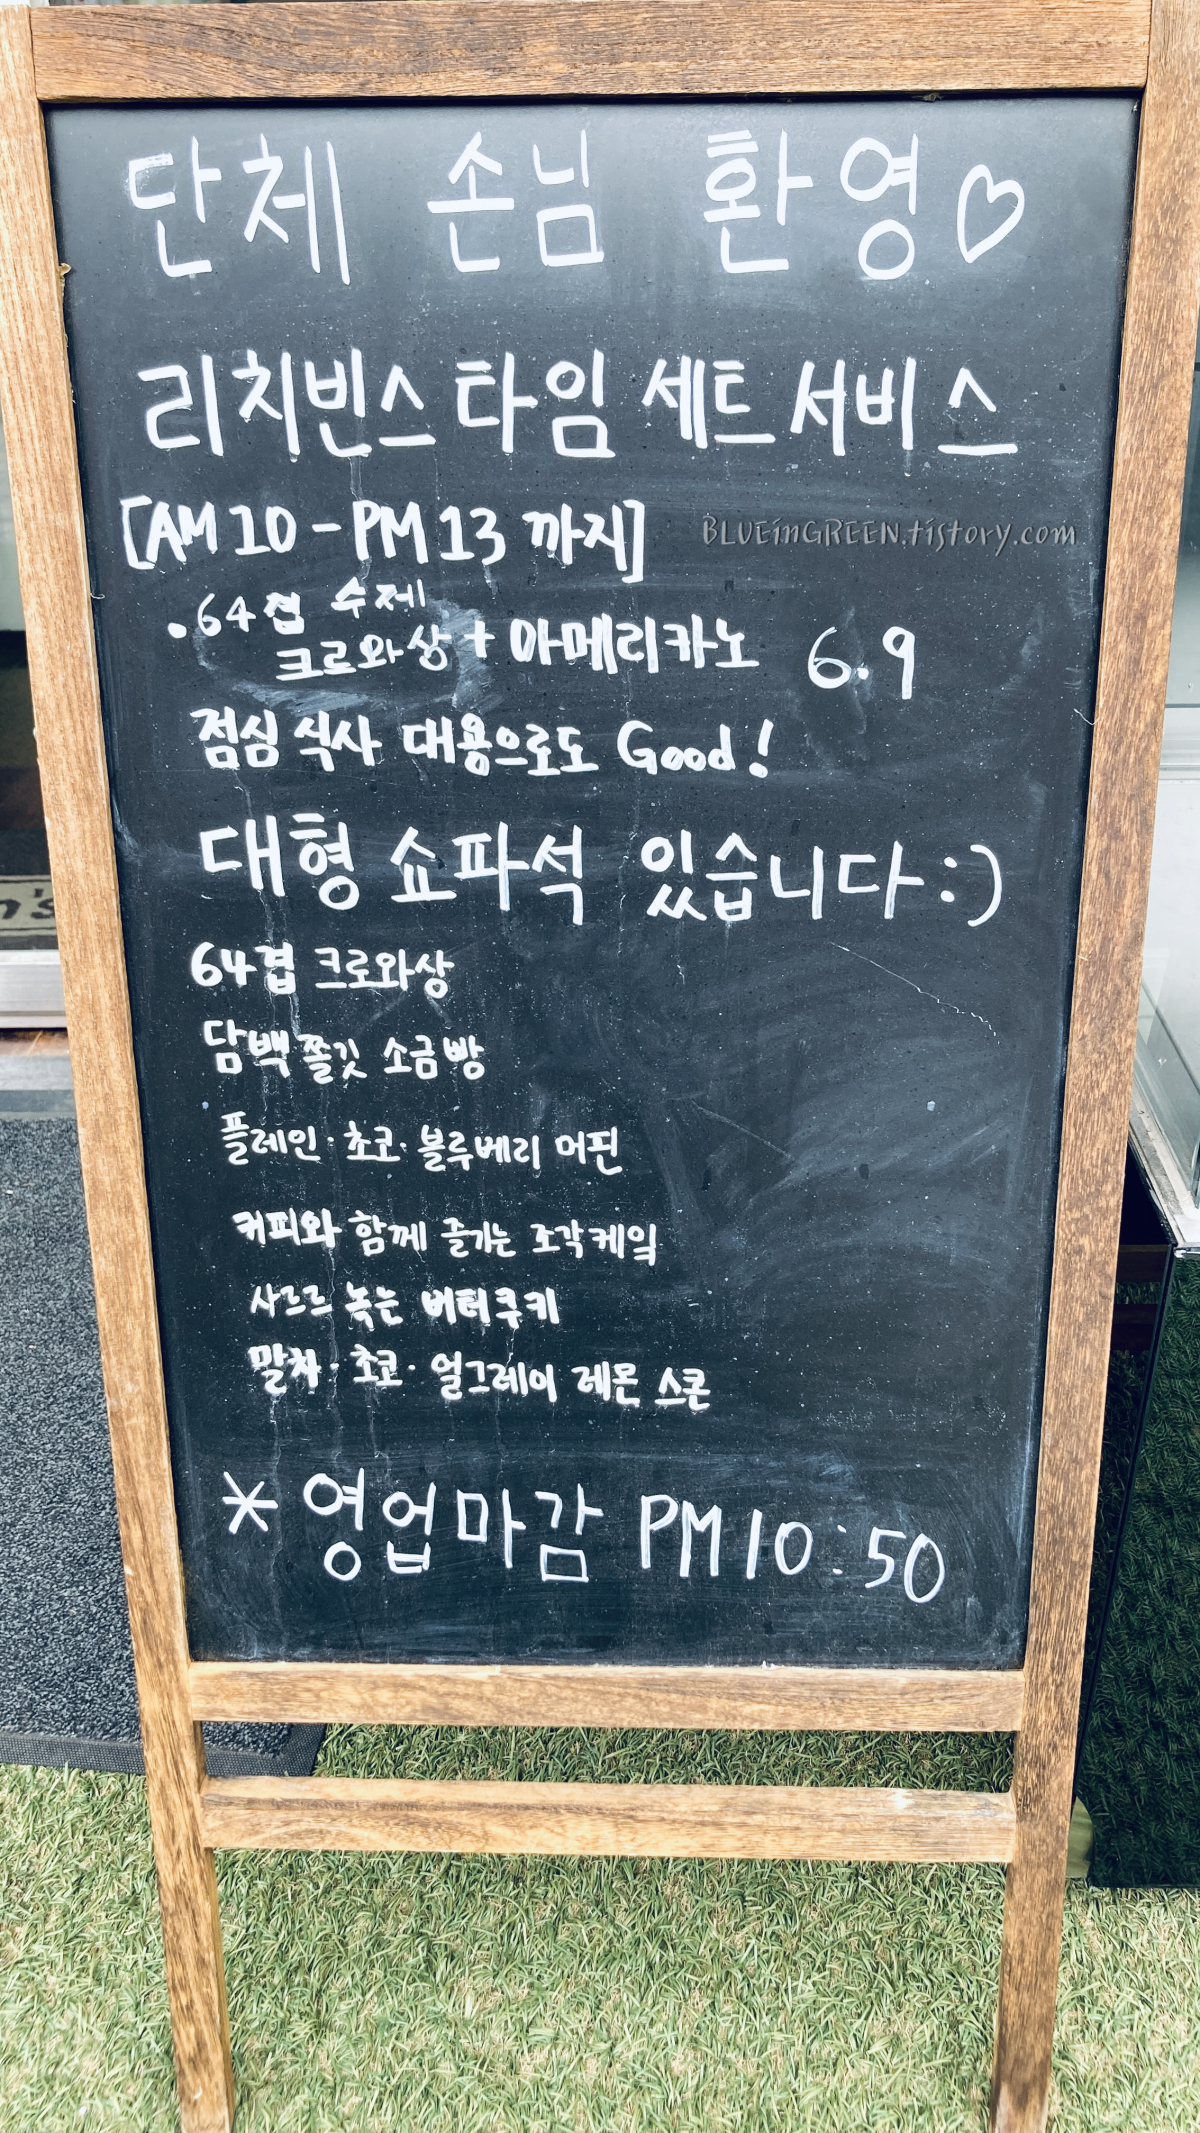 단체 손님 환영♡
리치빈스 타임 세트 서비스
[AM 10 - PM 13 까지]
BLUEinGREEN.tistory.com
· 64겹 수제
크로와상 + 아메리카노 6.9
점심 식사 대용으로도 Good!
대형 쇼파석 있습니다 :)
64겹 크로와상
담백쫄깃 소금빵
플레인·초코·블루베리 머핀
커피와 함께 즐기는 조각케잌
사르르 녹는 버터쿠키
말차·초코·얼그레이 레몬 스콘
* 영업마감 PM 10:50